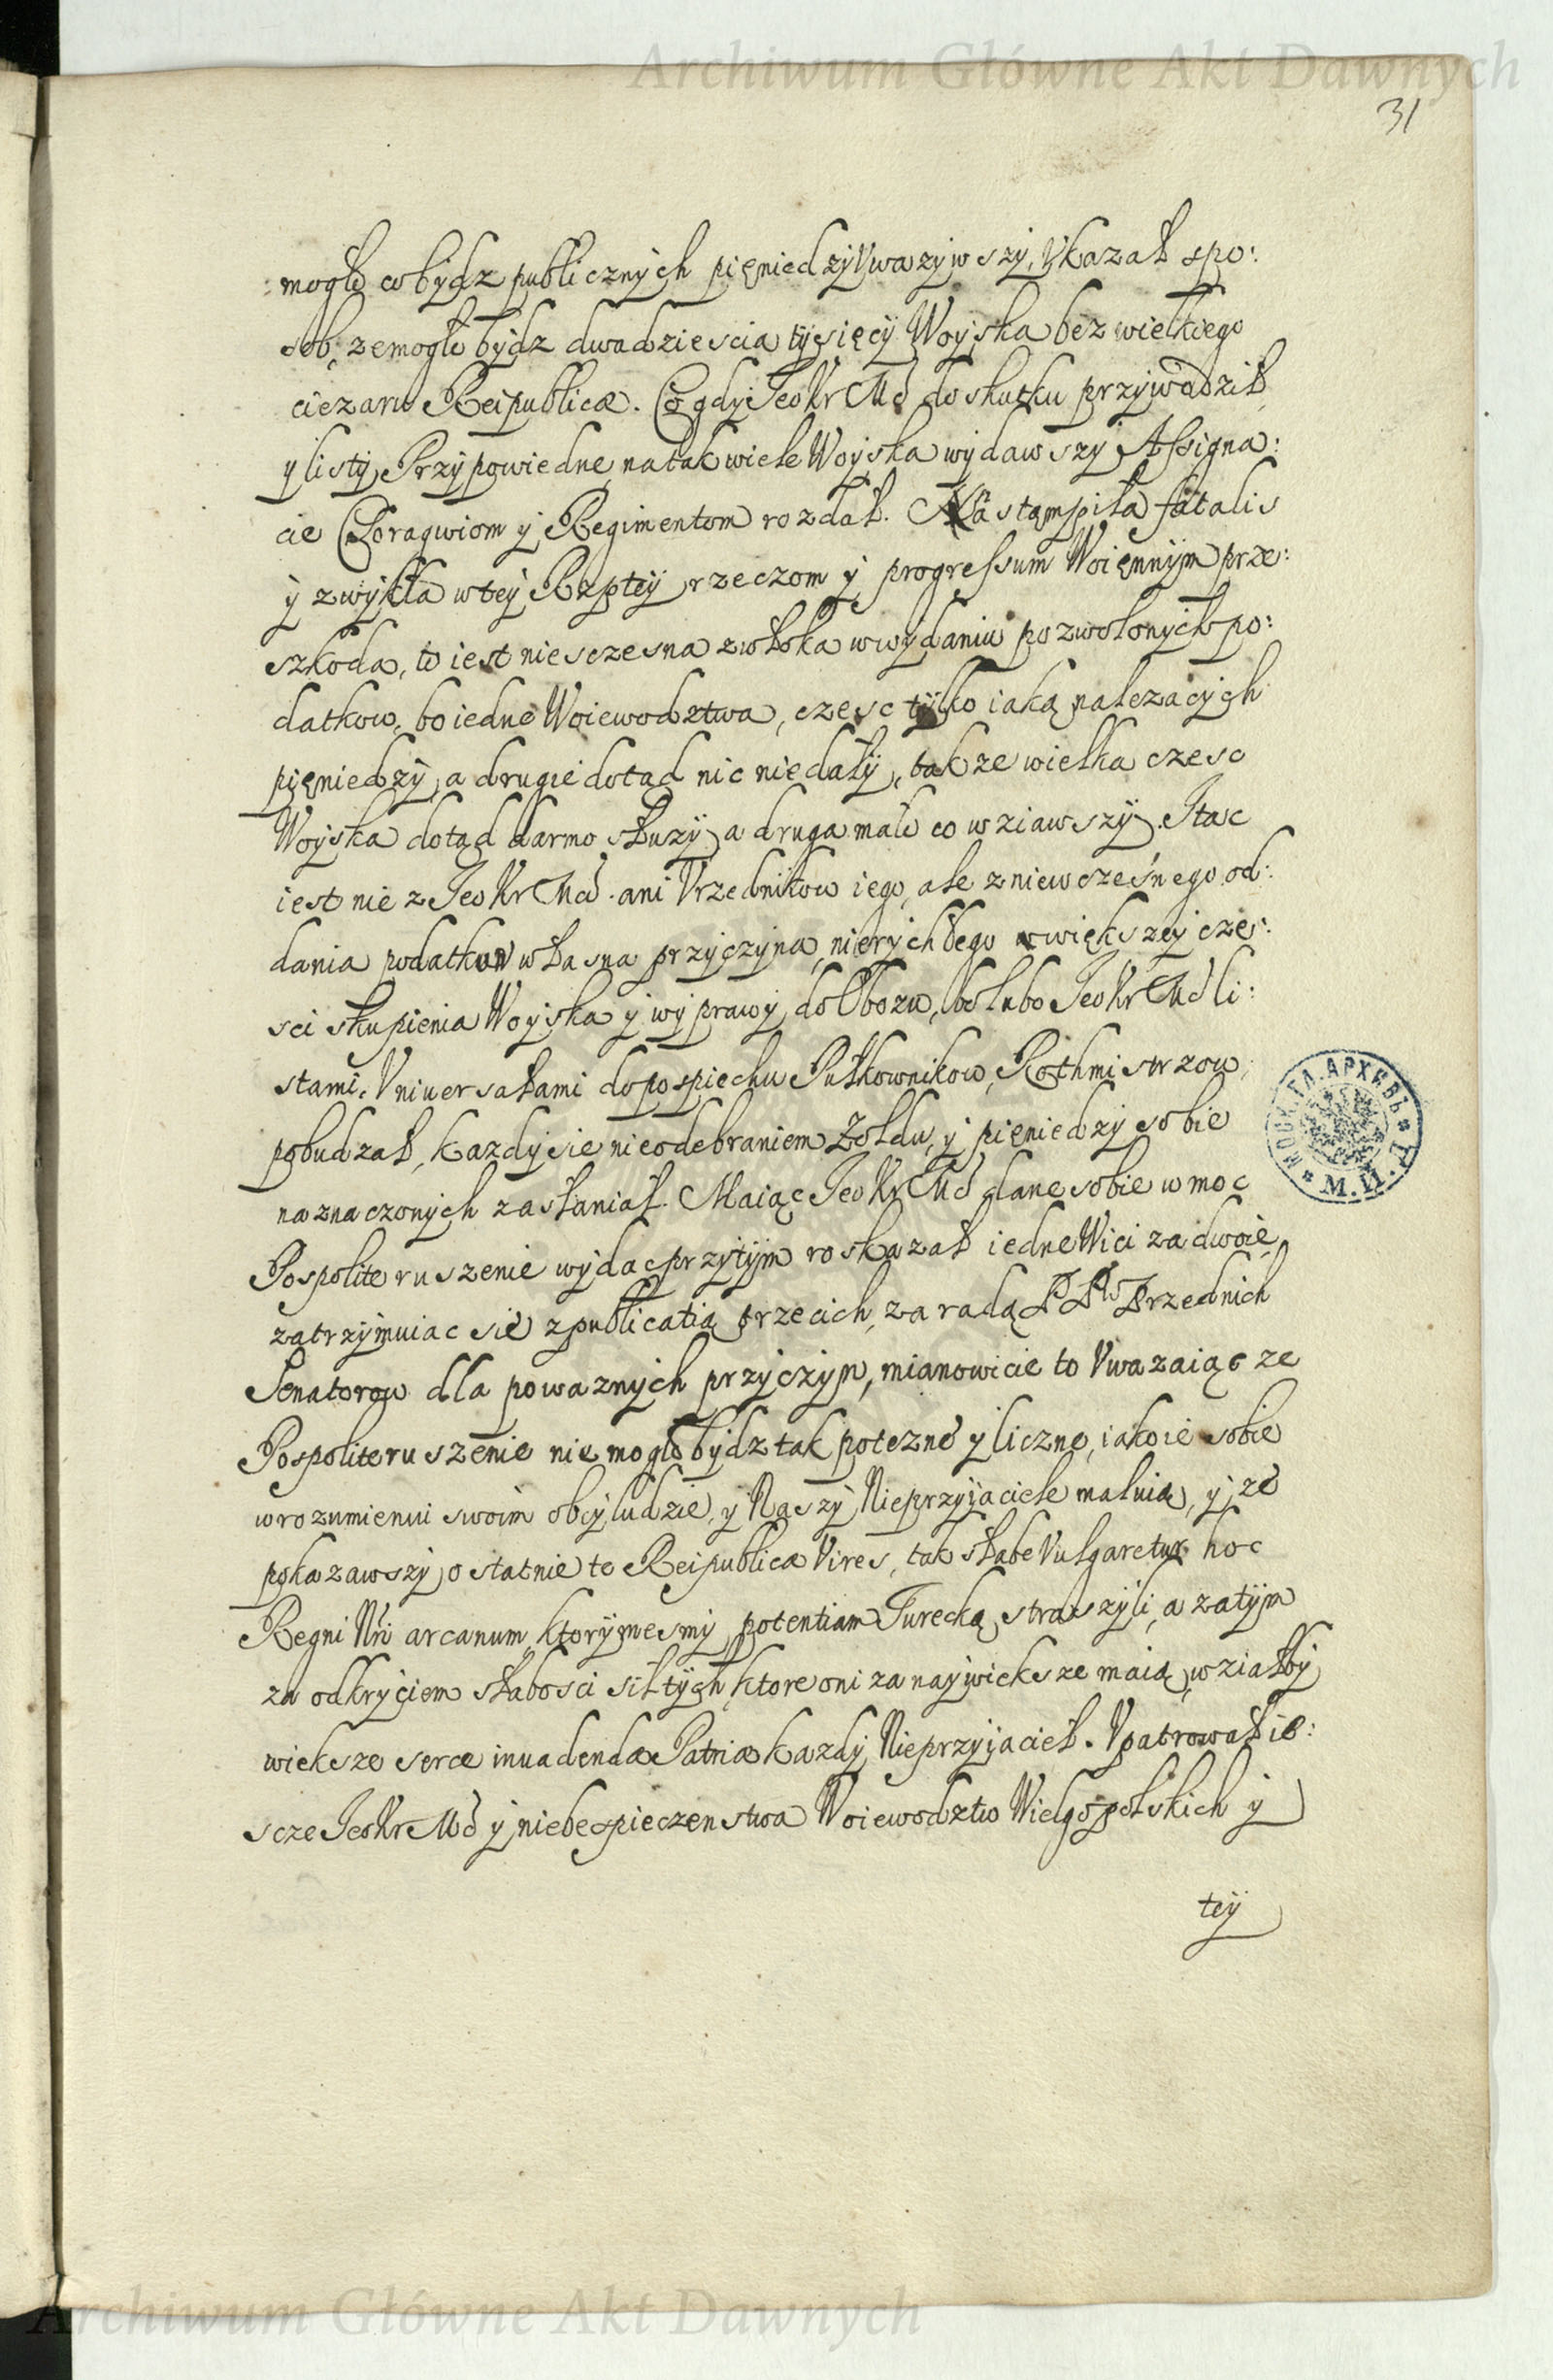 Archiwum Główne Akt Dawnych
31
mogło co bydz publicznych pięniedzy Uwazywszy, Ukazał spo:
sob, ze mogło bydz dwadziescia tysięcy Woyska bez wielkiego
ciezaru Reipublicæ. Co gdy Jeo Kr Mć do skutku przywodził,
y listy Przypowiedne na tak wiele Woyska wydawszy Assigna:
cie Chorągwiom y Regimentom rozdał. Nastąmpiła fatalis
y zwykła w tey Rzptey rzeczom y progressum Woięnnym prze:
szkoda, to iest niesczesna zwłoka w wydaniu pozwolonych po:
datkow, bo iedne Woiewodztwa, czesc tylko iaką nalezacych
pięniedzy, a drugie dotąd nic niedały, tak ze wielka czesc
Woyska dotąd darmo słuzy a druga mało co wziawszy. Itac
iest nie z Jeo Kr Mći ani Urzednikow iego, ale z niewczesnego od:
dania podatkow własna przyczyna, nierychłego w większey czes:
sci skupienia Woyska y wyprawy do Obozu, bo lubo Jeo Kr Mć li:
stami, Uniwersałami do pospiechu Pułkownikow, Rothmistrzow,
pobudzał, kazdy sie nieodebraniem Zołdu, y pięniedzy sobie
naznaczonych zasłaniał. Maiąc Jeo Kr Mć dane sobie w moc
Pospolite ruszenie wydac przytym roskazał iedne Wici za dwoie,
zatrzymuiac sie z publicatią trzecich, za radą PP Przednich
Senatorow dla powaznych przyczyn, mianowicie to Uwazaiąc ze
Pospolite ruszenie nie mogło bydz tak potezne y liczne, iakoie sobie
w rozumieniu swoim obcy ludzie, y Naszy Nieprzyjaciele maluią, y ze
pokazawszy ostatnie te Reipublicæ Vires, tak słabe Vulgaretur hoc
Regni Nri arcanum, ktorymesmy potentiam Turecką straszyli, a zatym
za odkryciem słabosci sił tych, ktore oni za naywieksze maią, wziąłby
wieksze serce invadendæ Patriæ kazdy Nieprzyjaciel. Upatrował ie:
scze Jeo Kr Mć y niebespieczenstwa Woiewodztw Wielgopolskich y
tey
МОСК. ГЛ. АРХИВЪ М.И.Д.
Archiwum Główne Akt Dawnych